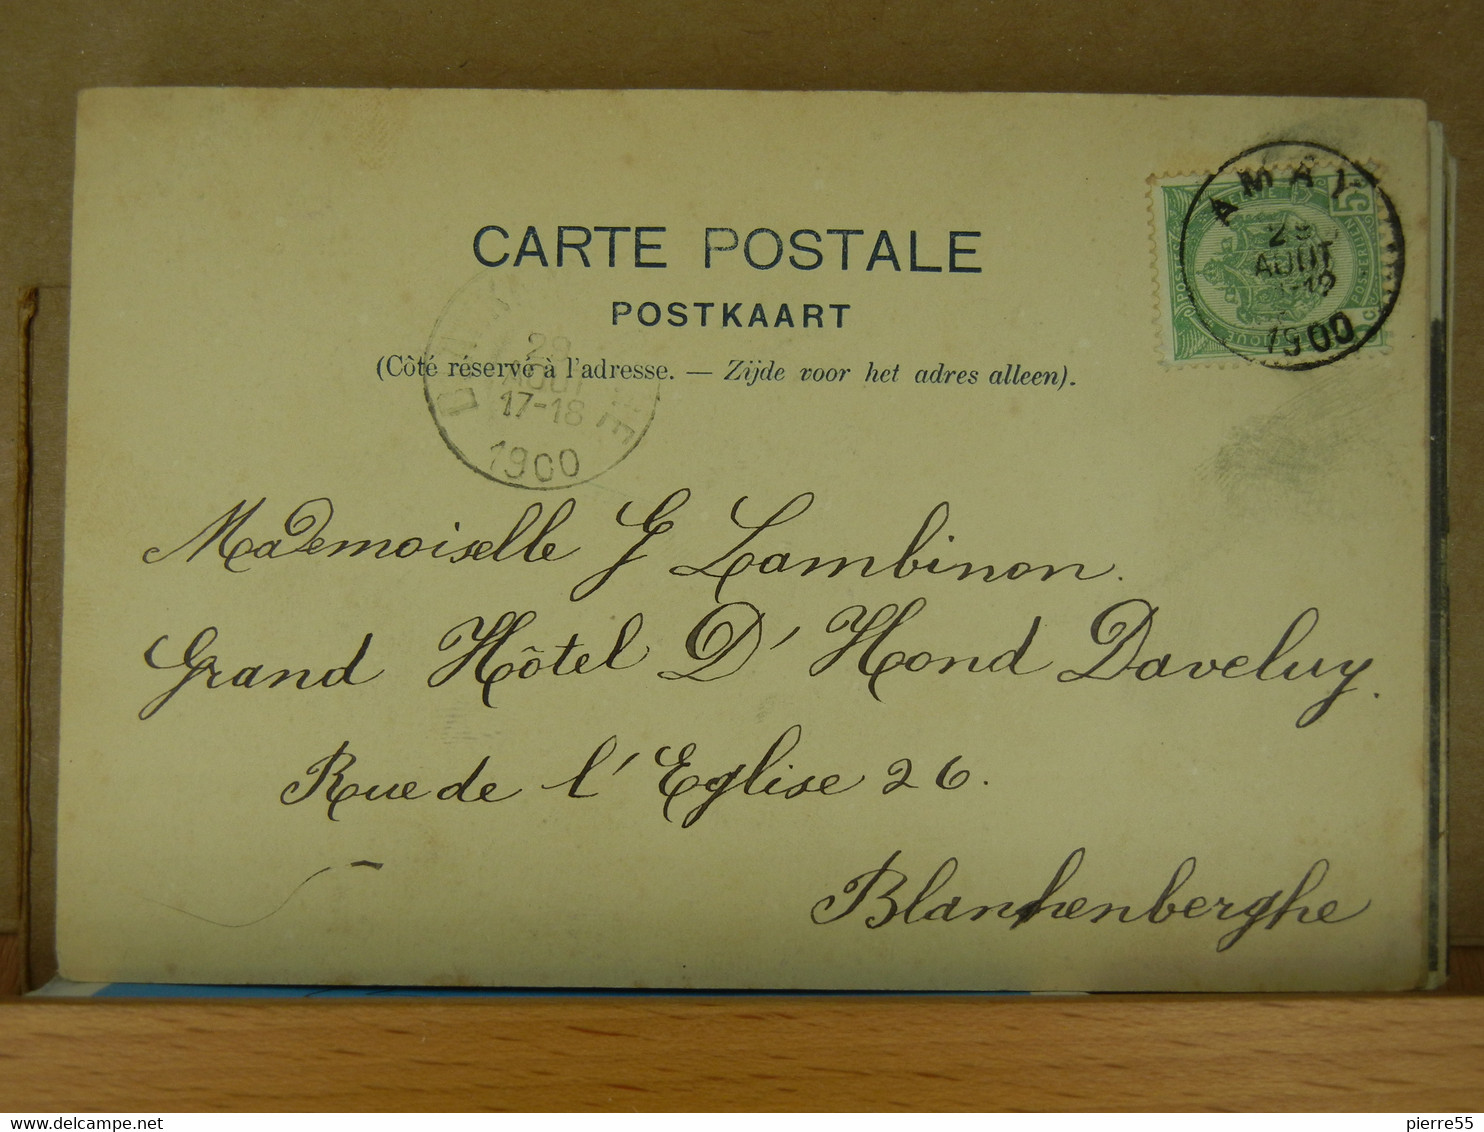 CARTE POSTALE
POSTKAART
(Côté réservé à l'adresse. — Zijde voor het adres alleen).
AMAY
AOUT
1900
29
AOUT
17-18
1900
Mademoiselle G Lambinon.
Grand Hôtel D'Hond Daveluy.
Rue de l'Eglise 26.
Blankenberghe
pierre55